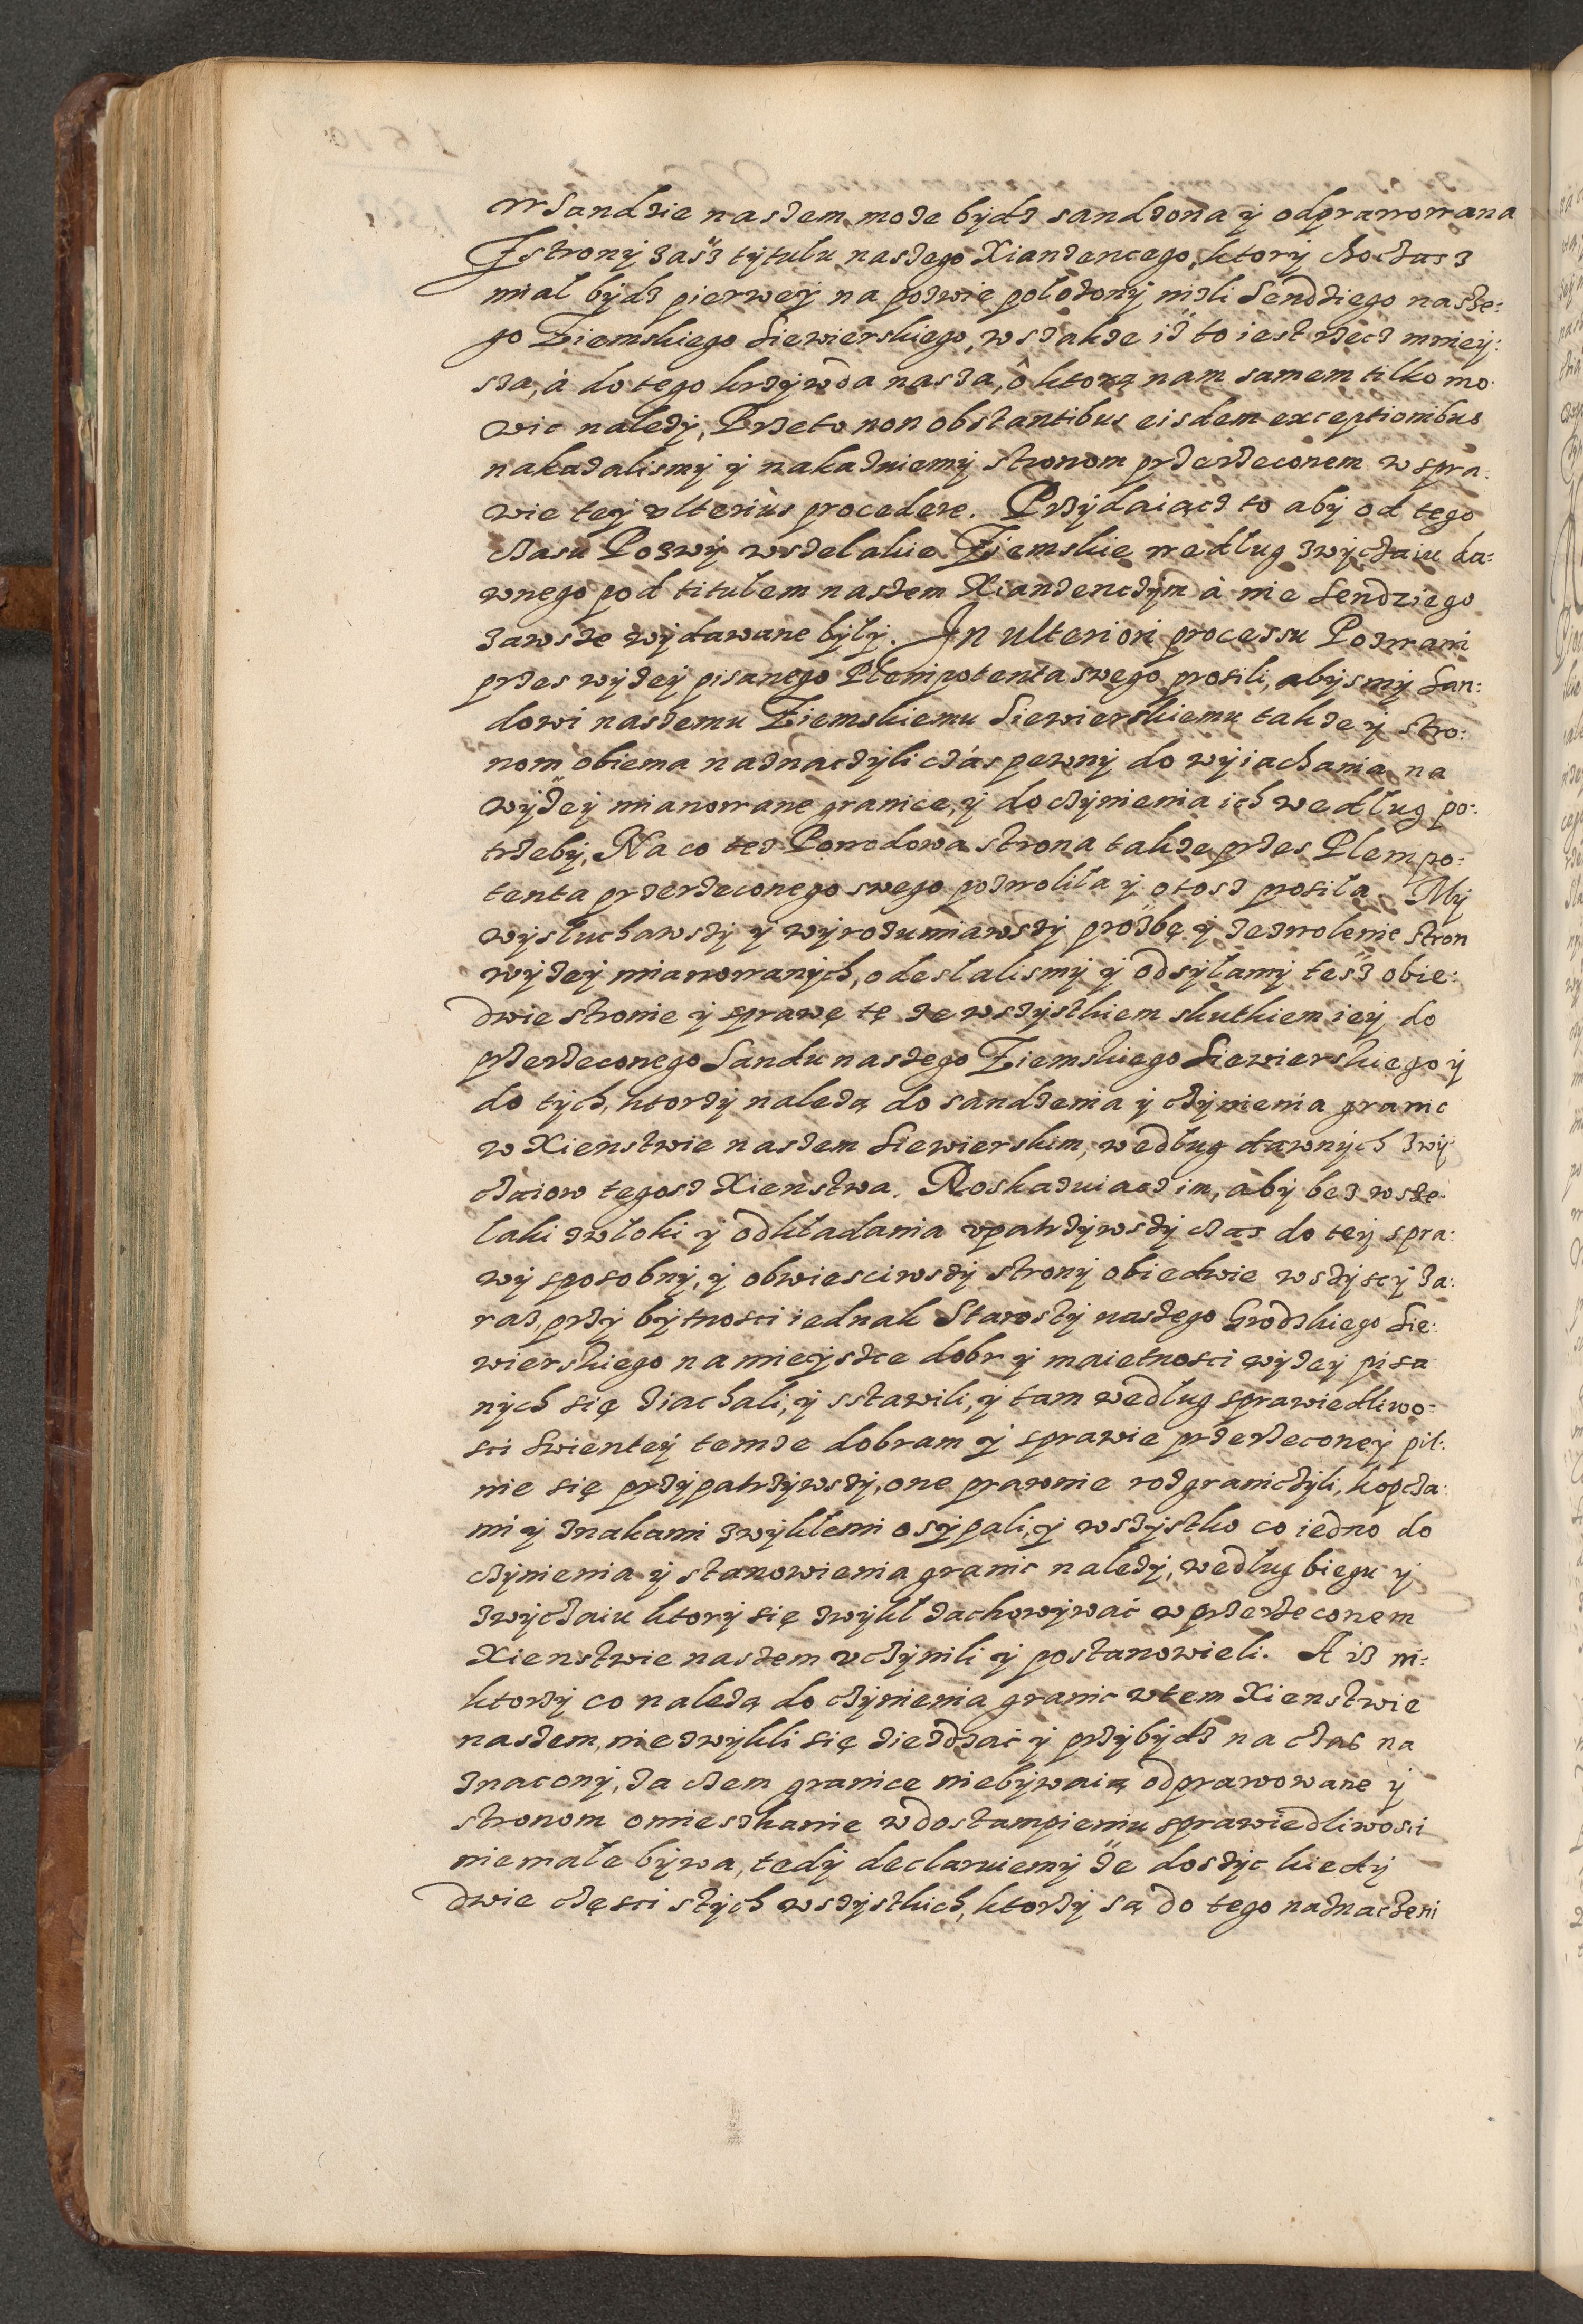 w Sandzie naszem może bydz sandzona ÿ odprawowana
Z stronÿ zasz tÿtułu naszego Xianzencego, ktorÿ choczasz
miał bydz pierweÿ na pozwie położonÿ niżli Sendziego nasze-
go Ziemskiego Siewierskiego, wszakże iż to iest rzecz mnieÿ-
sza, à do tego krzÿwda nasza, ô ktorą nam samem tilko mo-
wic należÿ, Przeto non obstantibus eisdem exceptionibus
nakazalismÿ ÿ nakazuiemÿ stronom przerzeconem w spra-
wie teÿ vlteriùs procedere. Przÿdaiącz to abÿ od tego
czasu Pozwÿ wszelakie Ziemskie według zwÿczaiu da-
wnego pod titułem naszem Xianzenczÿm à nie Sendziego
zawsze wÿdawane bÿlÿ. In ulteriori processu Pozwani
przes wÿżeÿ pisanego Plenipotenta swego prosili, abÿsmÿ San-
dowi naszemu Ziemskiemu Siewierskiemu także ÿ stro-
nom obiema naznaczÿli czas pewnÿ do wÿiachania na
wÿżeÿ mianowane granice, ÿ do czÿnienia ich według po-
trzebÿ, Na co też Powodowa strona także przes Plenipo-
tenta przerzeconego swego pozwoliła ÿ otosz prosiła. Mÿ
wÿsłuchawszÿ ÿ wÿrozumiawszÿ proźbę ÿ zezwolenie stron
wÿżeÿ mianowanÿch, odesłalismÿ ÿ odsÿłamÿ tesz obie-
dwie stronie ÿ sprawę tę ze wszÿstkiem skutkiem ieÿ do
przerzeconego Sandu naszego Ziemskiego Siewierskiego ÿ
do tÿch, ktorzÿ należą do sandzenia ÿ czÿnienia granic
w Xienstwie naszem Siewierskim, według dawnÿch zwÿ-
czaiow tegosz Xienstwa. Roskazuiącz im, àbÿ bez wsze-
laki zwłoki ÿ odkładania vpatrzÿwszÿ czas do teÿ spra-
wÿ sposobnÿ, ÿ obwiesciwszÿ stronÿ obiedwie wszÿscÿ za-
raz, przÿ bÿtnosci iednak Starostÿ naszego Grodzkiego Sie-
wierskiego na mieÿsżce dobr ÿ maietnosci wÿżeÿ pisa
nÿch się ziachali, ÿ sstawili, ÿ tam według sprawiedliwo-
sci Swienteÿ temże dobram ÿ sprawie przerzeconeÿ pil-
nie się przÿpatrzÿwszÿ, one prawnie rozgraniczÿli, kopcza-
mi ÿ znakami zwÿkłemi osÿpali, ÿ wszÿstko co iedno do
czÿnienia ÿ stanowienia granic należÿ, według biegu ÿ
zwÿczaiu ktorÿ się zwÿkł zachowÿwać w przerzeconem
Xienstwie naszem vczÿnili ÿ postanowieli. A iż ni-
ktorzÿ co należą do czÿnienia granic w tem Xienstwie
naszem, nie zwÿkli się zieżdzać ÿ przÿbÿdz na czas na
znaconÿ, za czem granice niebÿwaią odprawowane ÿ
stronom omieszkanie w dostampieniu sprawiedliwosci
niemałe bÿwa, tedÿ declaruiemÿ że dosżÿc kiedÿ
dwie częsci stÿch wszÿstkich, ktorzÿ są do tego naznaczeni